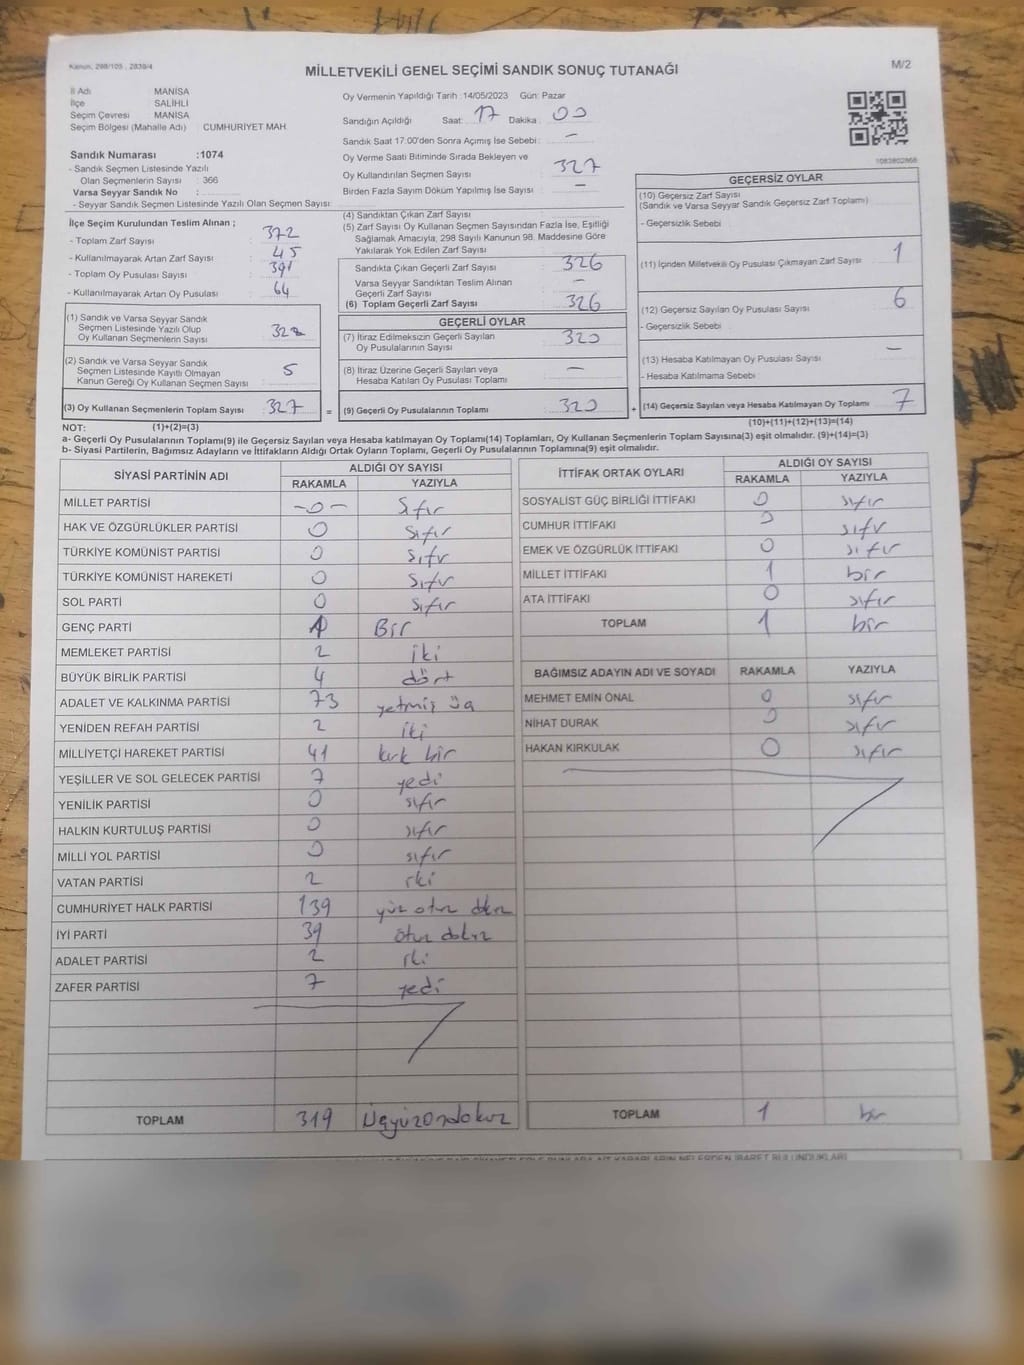 Kanun, 298/105 , 2839/4
MİLLETVEKİLİ GENEL SEÇİMİ SANDIK SONUÇ TUTANAĞI
M/2
İl Adı MANİSA
İlçe SALİHLİ
Seçim Çevresi MANİSA
Seçim Bölgesi (Mahalle Adı) CUMHURİYET MAH.
Sandık Numarası :1074
- Sandık Seçmen Listesinde Yazılı
Olan Seçmenlerin Sayısı : 366
Varsa Seyyar Sandık No :
- Seyyar Sandık Seçmen Listesinde Yazılı Olan Seçmen Sayısı:
Oy Vermenin Yapıldığı Tarih :14/05/2023 Gün: Pazar
Sandığın Açıldığı Saat: 17 Dakika: 00
Sandık Saat 17.00'den Sonra Açımış İse Sebebi : —
Oy Verme Saati Bitiminde Sırada Bekleyen ve
Oy Kullandırılan Seçmen Sayısı : 327
Birden Fazla Sayım Döküm Yapılmış İse Sayısı : —
1083802868
İlçe Seçim Kurulundan Teslim Alınan ;
- Toplam Zarf Sayısı : 372
- Kullanılmayarak Artan Zarf Sayısı : 45
- Toplam Oy Pusulası Sayısı : 391
- Kullanılmayarak Artan Oy Pusulası : 64
(1) Sandık ve Varsa Seyyar Sandık
Seçmen Listesinde Yazılı Olup
Oy Kullanan Seçmenlerin Sayısı : 322
(2) Sandık ve Varsa Seyyar Sandık
Seçmen Listesinde Kayıtlı Olmayan
Kanun Gereği Oy Kullanan Seçmen Sayısı : 5
(3) Oy Kullanan Seçmenlerin Toplam Sayısı : 327
(4) Sandıktan Çıkan Zarf Sayısı
(5) Zarf Sayısı Oy Kullanan Seçmen Sayısından Fazla İse, Eşitliği
Sağlamak Amacıyla, 298 Sayılı Kanunun 98. Maddesine Göre
Yakılarak Yok Edilen Zarf Sayısı :
Sandıkta Çıkan Geçerli Zarf Sayısı : 326
Varsa Seyyar Sandıktan Teslim Alınan
Geçerli Zarf Sayısı : —
(6) Toplam Geçerli Zarf Sayısı : 326
GEÇERLİ OYLAR
(7) İtiraz Edilmeksizin Geçerli Sayılan
Oy Pusulalarının Sayısı : 320
(8) İtiraz Üzerine Geçerli Sayılan veya
Hesaba Katılan Oy Pusulası Toplamı : —
= (9) Geçerli Oy Pusulalarının Toplamı : 320
GEÇERSİZ OYLAR
(10) Geçersiz Zarf Sayısı
(Sandık ve Varsa Seyyar Sandık Geçersiz Zarf Toplamı)
- Geçersizlik Sebebi :
(11) İçinden Milletvekili Oy Pusulası Çıkmayan Zarf Sayısı : 1
(12) Geçersiz Sayılan Oy Pusulası Sayısı : 6
- Geçersizlik Sebebi :
(13) Hesaba Katılmayan Oy Pusulası Sayısı : —
- Hesaba Katılmama Sebebi :
+ (14) Geçersiz Sayılan veya Hesaba Katılmayan Oy Toplamı : 7
NOT: (1)+(2)=(3)
(10)+(11)+(12)+(13)=(14)
a- Geçerli Oy Pusulalarının Toplamı(9) ile Geçersiz Sayılan veya Hesaba katılmayan Oy Toplamı(14) Toplamları, Oy Kullanan Seçmenlerin Toplam Sayısına(3) eşit olmalıdır. (9)+(14)=(3)
b- Siyasi Partilerin, Bağımsız Adayların ve İttifakların Aldığı Ortak Oyların Toplamı, Geçerli Oy Pusulalarının Toplamına(9) eşit olmalıdır.
SİYASİ PARTİNİN ADI ALDIĞI OY SAYISI
RAKAMLA YAZIYLA
MİLLET PARTİSİ -0- Sıfır
HAK VE ÖZGÜRLÜKLER PARTİSİ 0 Sıfır
TÜRKİYE KOMÜNİST PARTİSİ 0 Sıfır
TÜRKİYE KOMÜNİST HAREKETİ 0 Sıfır
SOL PARTİ 0 Sıfır
GENÇ PARTİ 1 Bir
MEMLEKET PARTİSİ 2 iki
BÜYÜK BİRLİK PARTİSİ 4 dört
ADALET VE KALKINMA PARTİSİ 73 yetmiş üç
YENİDEN REFAH PARTİSİ 2 iki
MİLLİYETÇİ HAREKET PARTİSİ 41 kırk bir
YEŞİLLER VE SOL GELECEK PARTİSİ 7 yedi
YENİLİK PARTİSİ 0 sıfır
HALKIN KURTULUŞ PARTİSİ 0 sıfır
MİLLİ YOL PARTİSİ 0 sıfır
VATAN PARTİSİ 2 iki
CUMHURİYET HALK PARTİSİ 139 yüz otuz dokuz
İYİ PARTİ 39 otuz dokuz
ADALET PARTİSİ 2 iki
ZAFER PARTİSİ 7 yedi
TOPLAM 319 Üçyüzondokuz
İTTİFAK ORTAK OYLARI ALDIĞI OY SAYISI
RAKAMLA YAZIYLA
SOSYALİST GÜÇ BİRLİĞİ İTTİFAKI 0 sıfır
CUMHUR İTTİFAKI 0 sıfır
EMEK VE ÖZGÜRLÜK İTTİFAKI 0 sıfır
MİLLET İTTİFAKI 1 bir
ATA İTTİFAKI 0 sıfır
TOPLAM 1 bir
BAĞIMSIZ ADAYIN ADI VE SOYADI RAKAMLA YAZIYLA
MEHMET EMİN ÖNAL 0 sıfır
NİHAT DURAK 0 sıfır
HAKAN KIRKULAK 0 sıfır
TOPLAM 1 bir